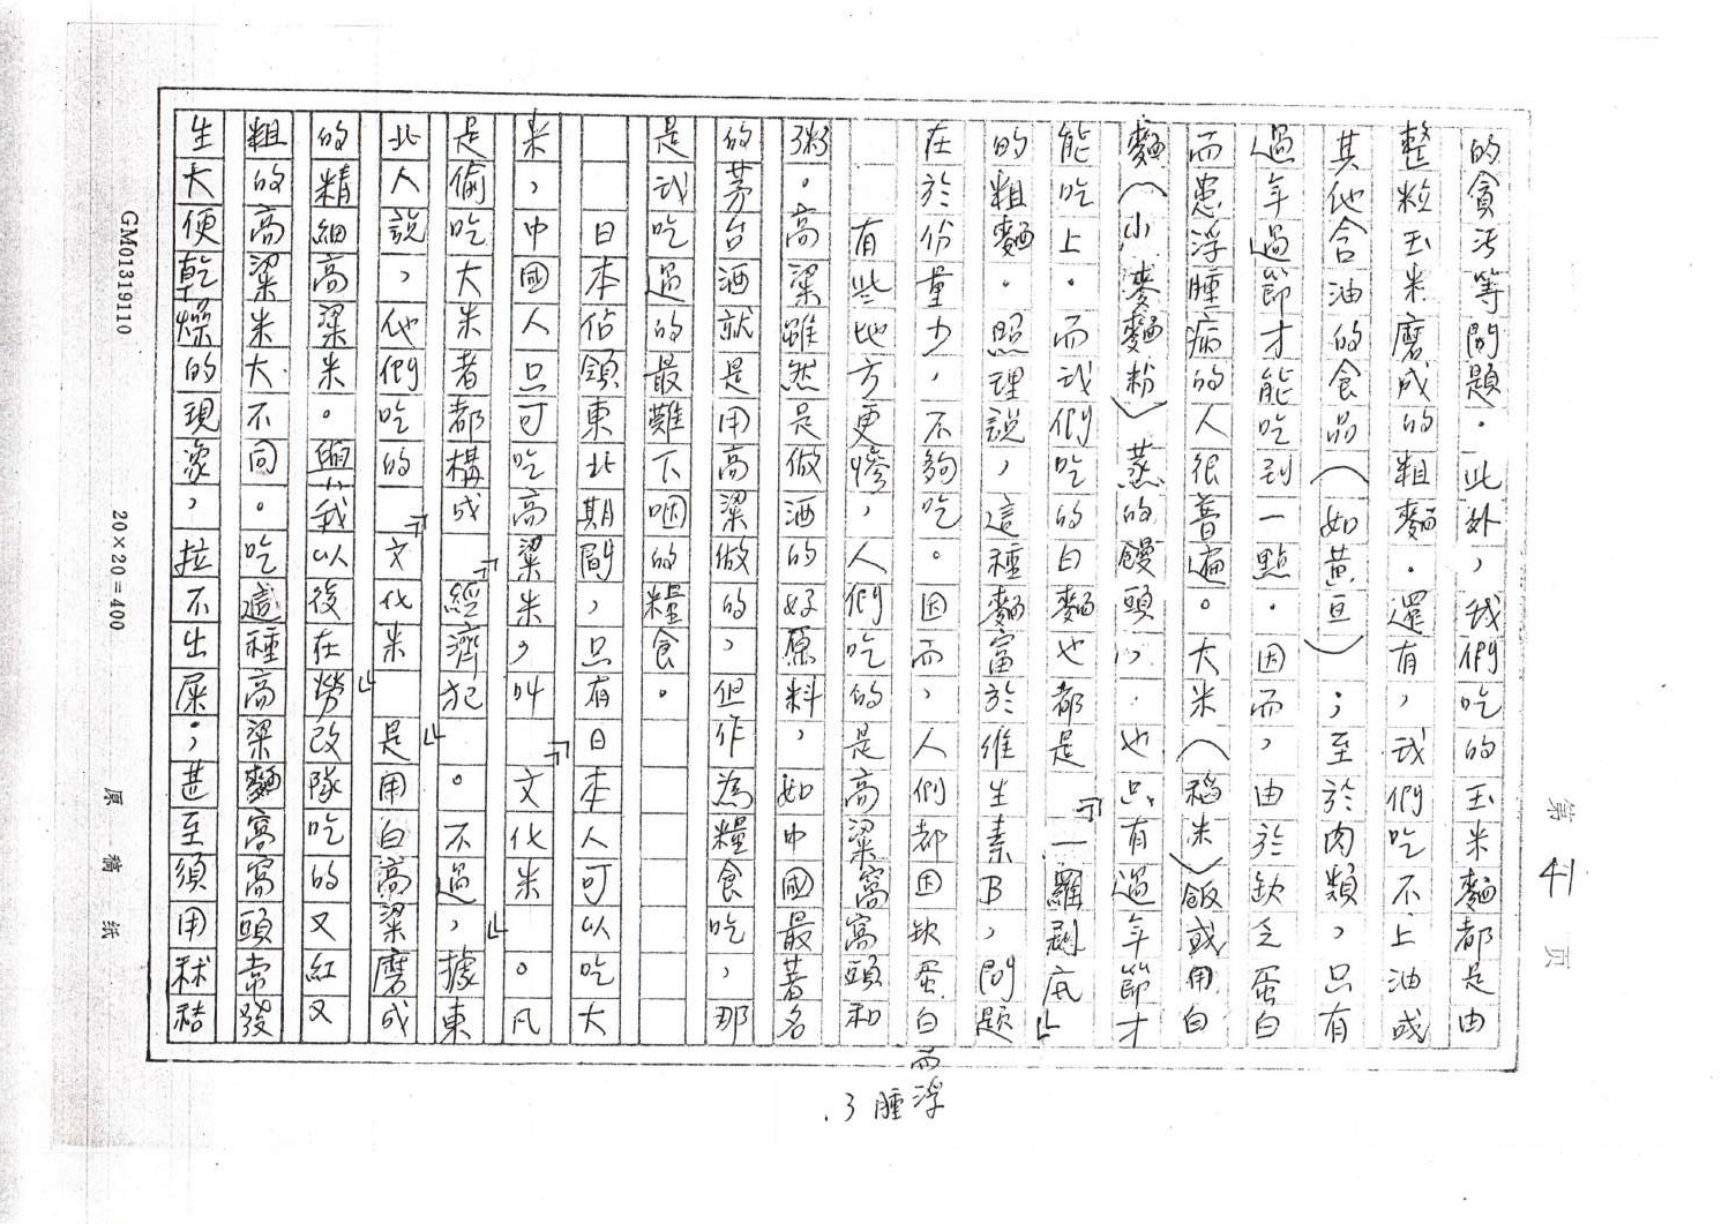 的貪污等問題．此外，我們吃的玉米麵都是由
整粒玉米磨成的粗麵．還有，我們吃不上油或
其他含油的食品（如黃豆）；至於肉類，只有
過年過節才能吃到一點．因而，由於缺乏蛋白
而患浮腫病的人很普遍。大米（稻米）飯或用白
麵（小麥麵粉）蒸的饅頭，也只有過年節才
能吃上．而我們吃的白麵也都是『一羅到底』
的粗麵．照理說，這種麵富於維生素B，問題
在於份量少，不夠吃。因而，人們都因缺蛋白
而浮腫了．
有些地方更慘，人們吃的是高粱窩窩頭和
粥。高粱雖然是做酒的好原料，如中國最著名
的茅台酒就是用高粱做的，但作為糧食吃，那
是我吃過的最難下咽的糧食。
日本佔領東北期間，只有日本人可以吃大
米，中國人只可吃高粱米，叫『文化米』。凡
是偷吃大米者都構成『經濟犯』。不過，據東
北人說，他們吃的『文化米』是用白高粱磨成
的精細高粱米。我以後在勞改隊吃的又紅又
粗的高粱米大不同。吃這種高粱麵窩窩頭常發
生大便乾燥的現象，拉不出屎；甚至須用秫秸
第 4 页
GM01319110
20×20=400
原稿紙